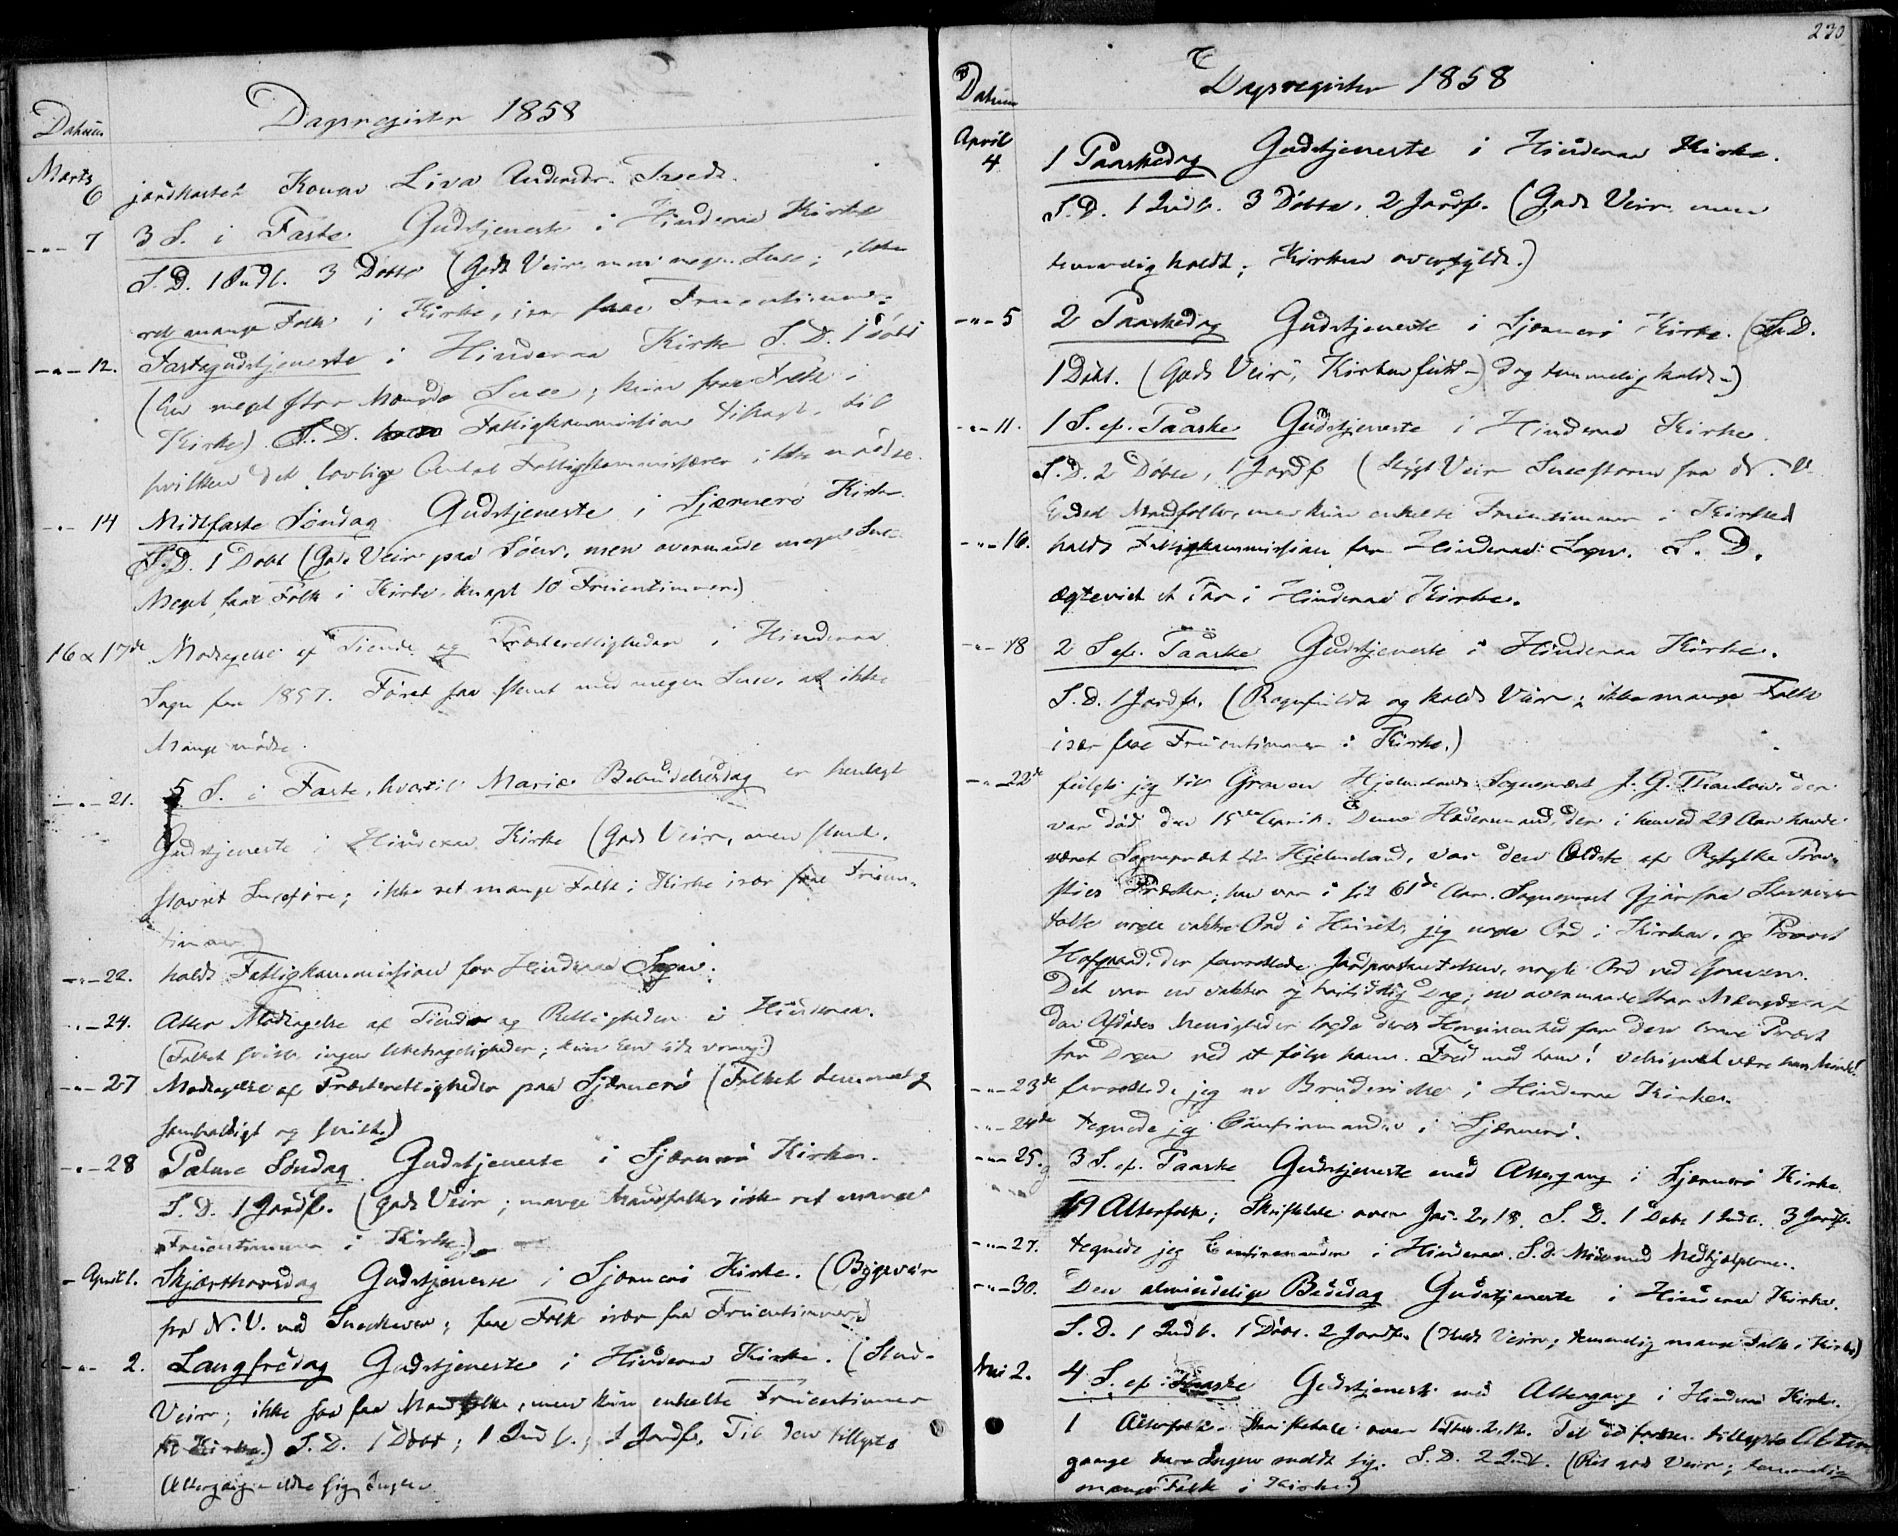 Dagsregister 1858
Datum
Marts
6 jordkastet Konen Liva Andersdr.
-"- 7 3 S. i Faste. Gudstjeneste i Hinderaa Kirke
S. D. 1 Indl. 3 Døbte (Godt Veir, men megen Snee; ikke
ret mange Folk i Kirke, især faae Fruentimmer.
-"- 12. Fastegudstjeneste i Hinderaa Kirke S. D. 1 Døbt
(En meget stor Mængde Snee; kun faae Folk i
Kirke). S. D. Fattigkommission tilsagt, til
hvilken det lovlige Antal Fattigkommissærer ikke mødte.
-"- 14 Midtfaste Søndag Gudstjeneste i Sjærnerø Kirke
S. D. 1 Døbt (Godt Veir paa Søen, men overmaade megen Snee
Meget faae Folk i Kirke, knapt 10 Fruentimmer.)
16 & 17de Modtagelse af Tiende og Præsterettigheder i Hinderaa
Sogn for 1857. Føret saa slemt med megen Snee, at ikke
Mange mødte.
-"- 21. 5 S. i Faste, hvortil Mariæ Bebudelsesdag er henlagt
Gudstjeneste i Hinderaa Kirke (Godt Veir, men slemt,
Sneeføre; ikke ret mange Folk i Kirke især faae Fruen-
timmer)
-"- 22. holdt Fattigkommission for Hinderaa Sogn.
-"- 24. Atter Modtagelse af Tiende og Rettigheder i Hinderaa.
(Folket ingen Ubehageligheder; kun Een lidt vrang.)
-"- 27 Modtagelse af Præsterettigheder paa Sjærnerø (Folket temmelig
og)
-"- 28 Palme Søndag Gudstjeneste i Sjærnerø Kirke.
S. D. 1 Jordf. (godt Veir; mange Mandfolk, ikke ret mange
Fruentimmer i Kirke)
- April 1. Skjærthorsdag Gudstjeneste i Sjærnerø Kirke. (Bygeveir
fra N. V. med Snee; faae Folk især faa Fruentimmer)
-"- 2. Langfredag Gudstjeneste i Hinderaa Kirke. (Slud-
Veir; ikke saa faa Mandfolk, men kun enkelte Fruentimmer
til Kirke.) S. D. 1 Døbt; 1 Indl.; 1 Jordf. Til den tillyste
Altergang meldte sig Ingen
230
Dagsregister 1858
Datum
April
4 1 Paaskedag Gudstjeneste i Hinderaa Kirke.
S. D. 1 Indl. 3 Døbte, 2 Jordf. (Godt Veir, men
temmelig koldt; Kirken overfyldt.)
-"- 5 2 Paaskedag Gudstjeneste i Sjærnerø Kirke. (S. D.
1 Døbt. (Godt Veir, Kirken fuld -) dog temmelig koldt -)
-"- 11. 1 S. ef. Paaske Gudstjeneste i Hinderaa Kirke
S. D. 2 Døbte, 1 Jordf (Stygt Veir Sneestorm fra N. V.
Endel Mandfolk, men kun enkelte Fruentimmer i Kirke)
-"- 16. holdt Fattigkommission for Hinderaa Sogn. S. D.
ægteviet et Par i Hinderaa Kirke.
-"- 18 2 S. ef. Paaske Gudstjeneste i Hinderaa Kirke.
S. D. 1 Jordf. (Regnfuldt og koldt Veir; ikke mange Folk
især faae Fruentimmer i Kirke.)
-"- 22de fulgte jeg til Graven Hjelmelands Sognepræst J. G. Thaulow, der
var død den 15de April. Denne Hædersmand, der i henved 29 Aar havde
været Sognepræst til Hjelmeland, var den ældste af Ryfylke Prov-
sties Præster; han var i sit 61de Aar. Sognepræst fra Stavanger
talte nogle vakkre Ord i Huset, jeg nogle Ord i Kirken, og Provst
Hofgaard, der forrettede Jordpaakastelsen, nogle Ord ved Graven.
Det var en vakker og høitidelig Dag; en overmaade stor Mængde af
den Afdødes Menigheder lagde deres Hengivenhed for den brave Præst
for Dagen ved at følge ham. Fred med ham! velsignet være hans Minde!
-"- 23de forrettede jeg en Brudevielse i Hinderaa Kirke.
-"- 24de tegnede jeg Confirmander i Sjærnerø.
-"- 25. 3 S. ef. Paaske Gudstjeneste med Altergang i Sjærnerø Kirke.
19 Alterfolk; Skriftetale over Jac. 2, 18. S. D. 1 Døbt 1 Indl. 3 Jordf.
-"- 27. tegnede jeg Confirmander i Hinderaa. S. D. Møde med Medhjælperne.
-"- 30. Den almindelige Bededag Gudstjeneste i Hinderaa Kirke.
S. D. 1 Indl. 1 Døbt. 2 Jordf. (Koldt Veir; temmelig mange Folk i Kirke)
Mai 2. 4 S. ef. Paaske Gudstjeneste med Altergang i Hinderaa Kirke.
1 Alterfolk. Skriftetale over Til tillyste Alter
gange have Ingen meldt sig. S. D. 2 Indl. (Ret godt Veir; temmelig
mange Folk i Kirke.)